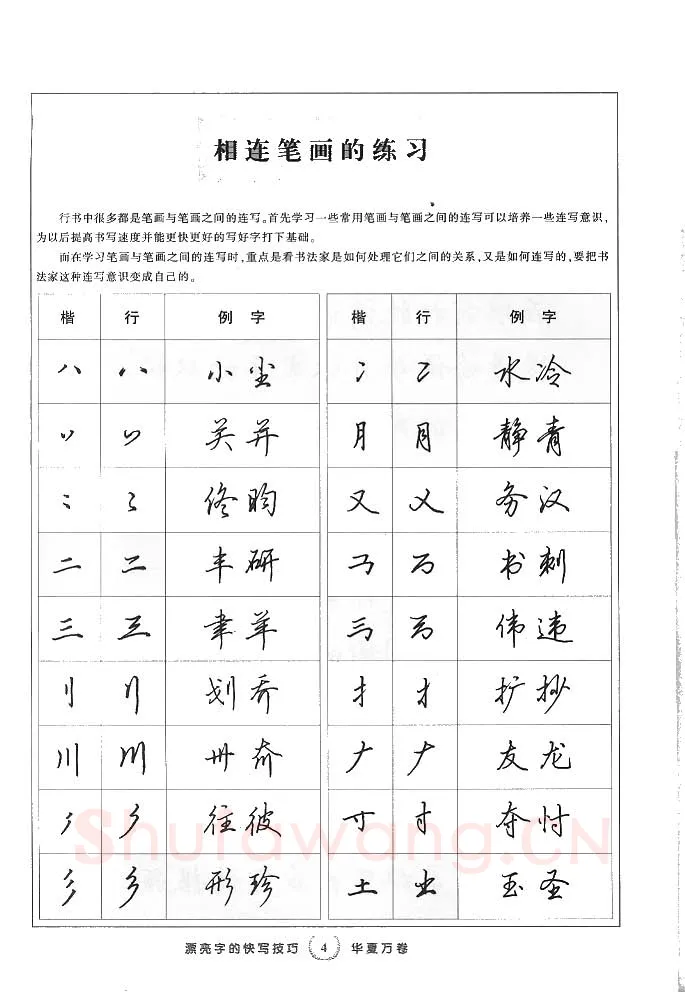 相连笔画的练习
行书中很多都是笔画与笔画之间的连写。首先学习一些常用笔画与笔画之间的连写可以培养一些连写意识,
为以后提高书写速度并能更快更好的写好字打下基础。
而在学习笔画与笔画之间的连写时,重点是看书法家是如何处理它们之间的关系,又是如何连写的,要把书
法家这种连写意识变成自己的。
楷 行 例 字 楷 行 例 字
小尘 水冷
关并 月 月 静青
修昀 又 又 务汉
二 二 丰研 书刺
三 三 伟违
刂 刂 划乔 扩抄
川 川 卅奔 友龙
往彼 寸 寸 夺忖
彡 彡 形珍 土 土 玉圣
Shufawang.CN
漂亮字的快写技巧 4 华夏万卷